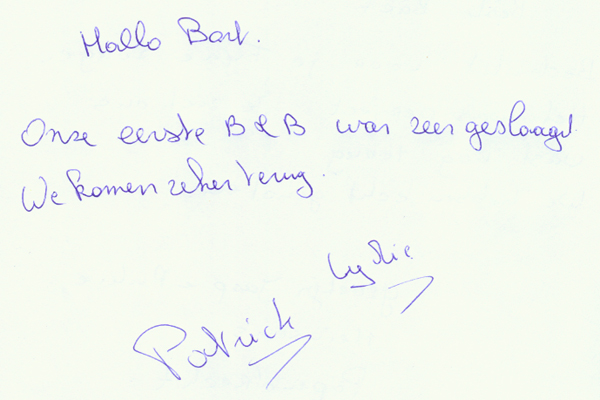 Hallo Bart.
Onze eerste B & B was zeer geslaagd.
We komen zeker terug.
Lydie
Patrick